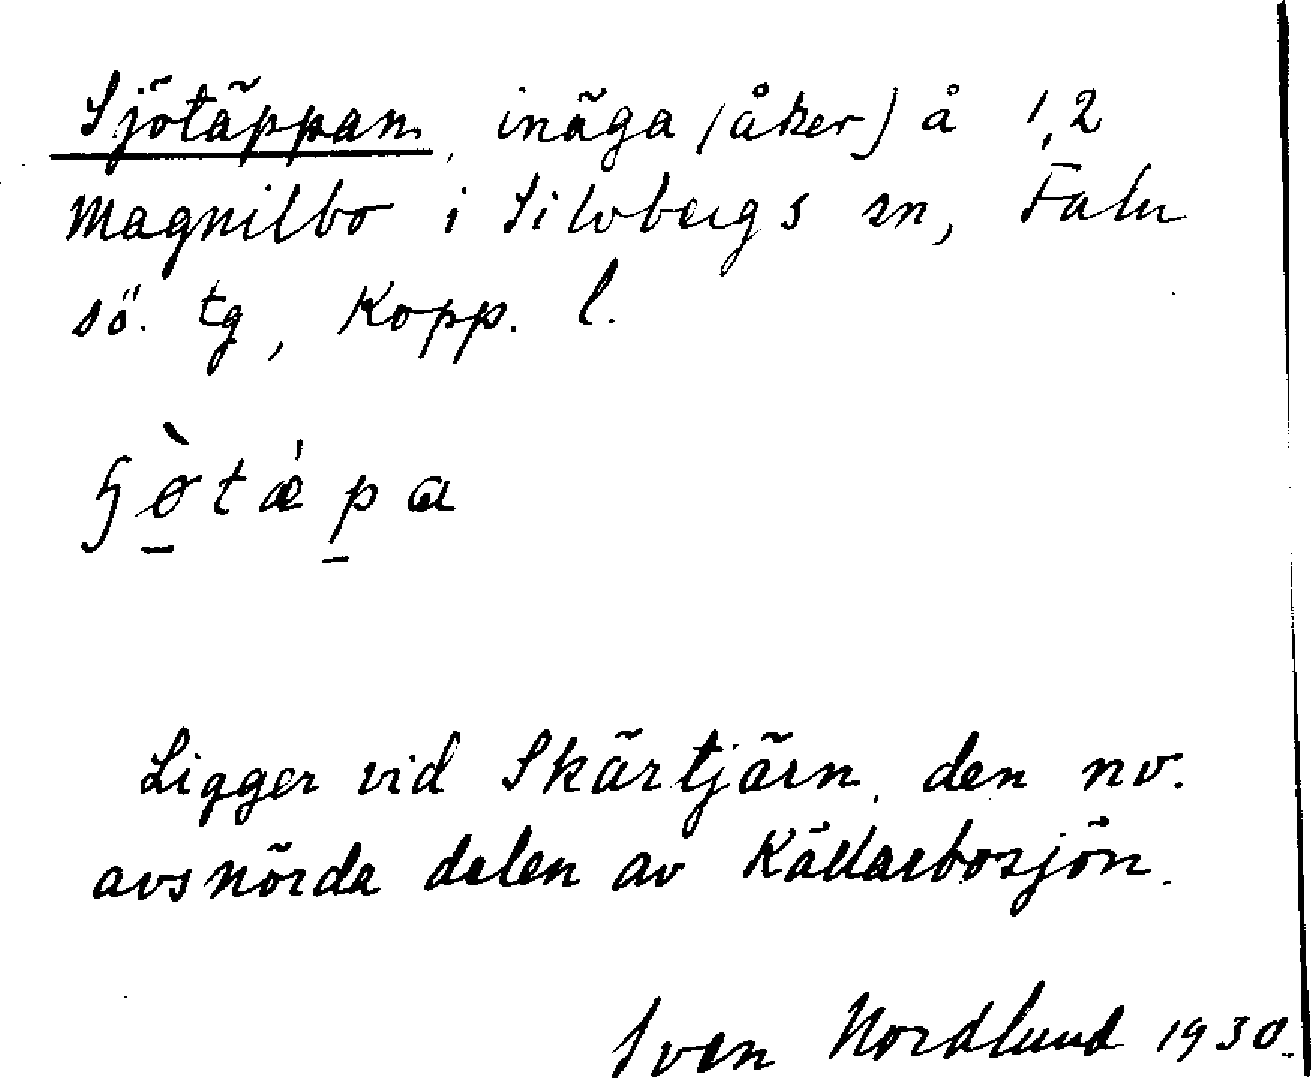 Sjötäppan, inäga (åker) å 1,2
Magnilbo i Silvbergs sn, Falu
sö. tg, Kopp. l.
Ligger vid Skärtjärn, den nv.
avsnörda delen av Källarbosjön.
Sven Nordlund 1930.